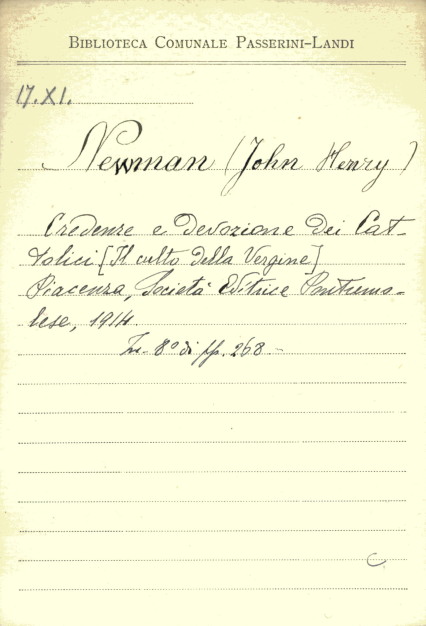 BIBLIOTECA COMUNALE PASSERINI-LANDI
17.XI.
Newman (John Henry)
Credenze e devozione dei Cat-
tolici [Il culto della Vergine]
Piacenza, Società Editrice Pontremo-
lese, 1914.
In- 8º di pp. 268 -
C